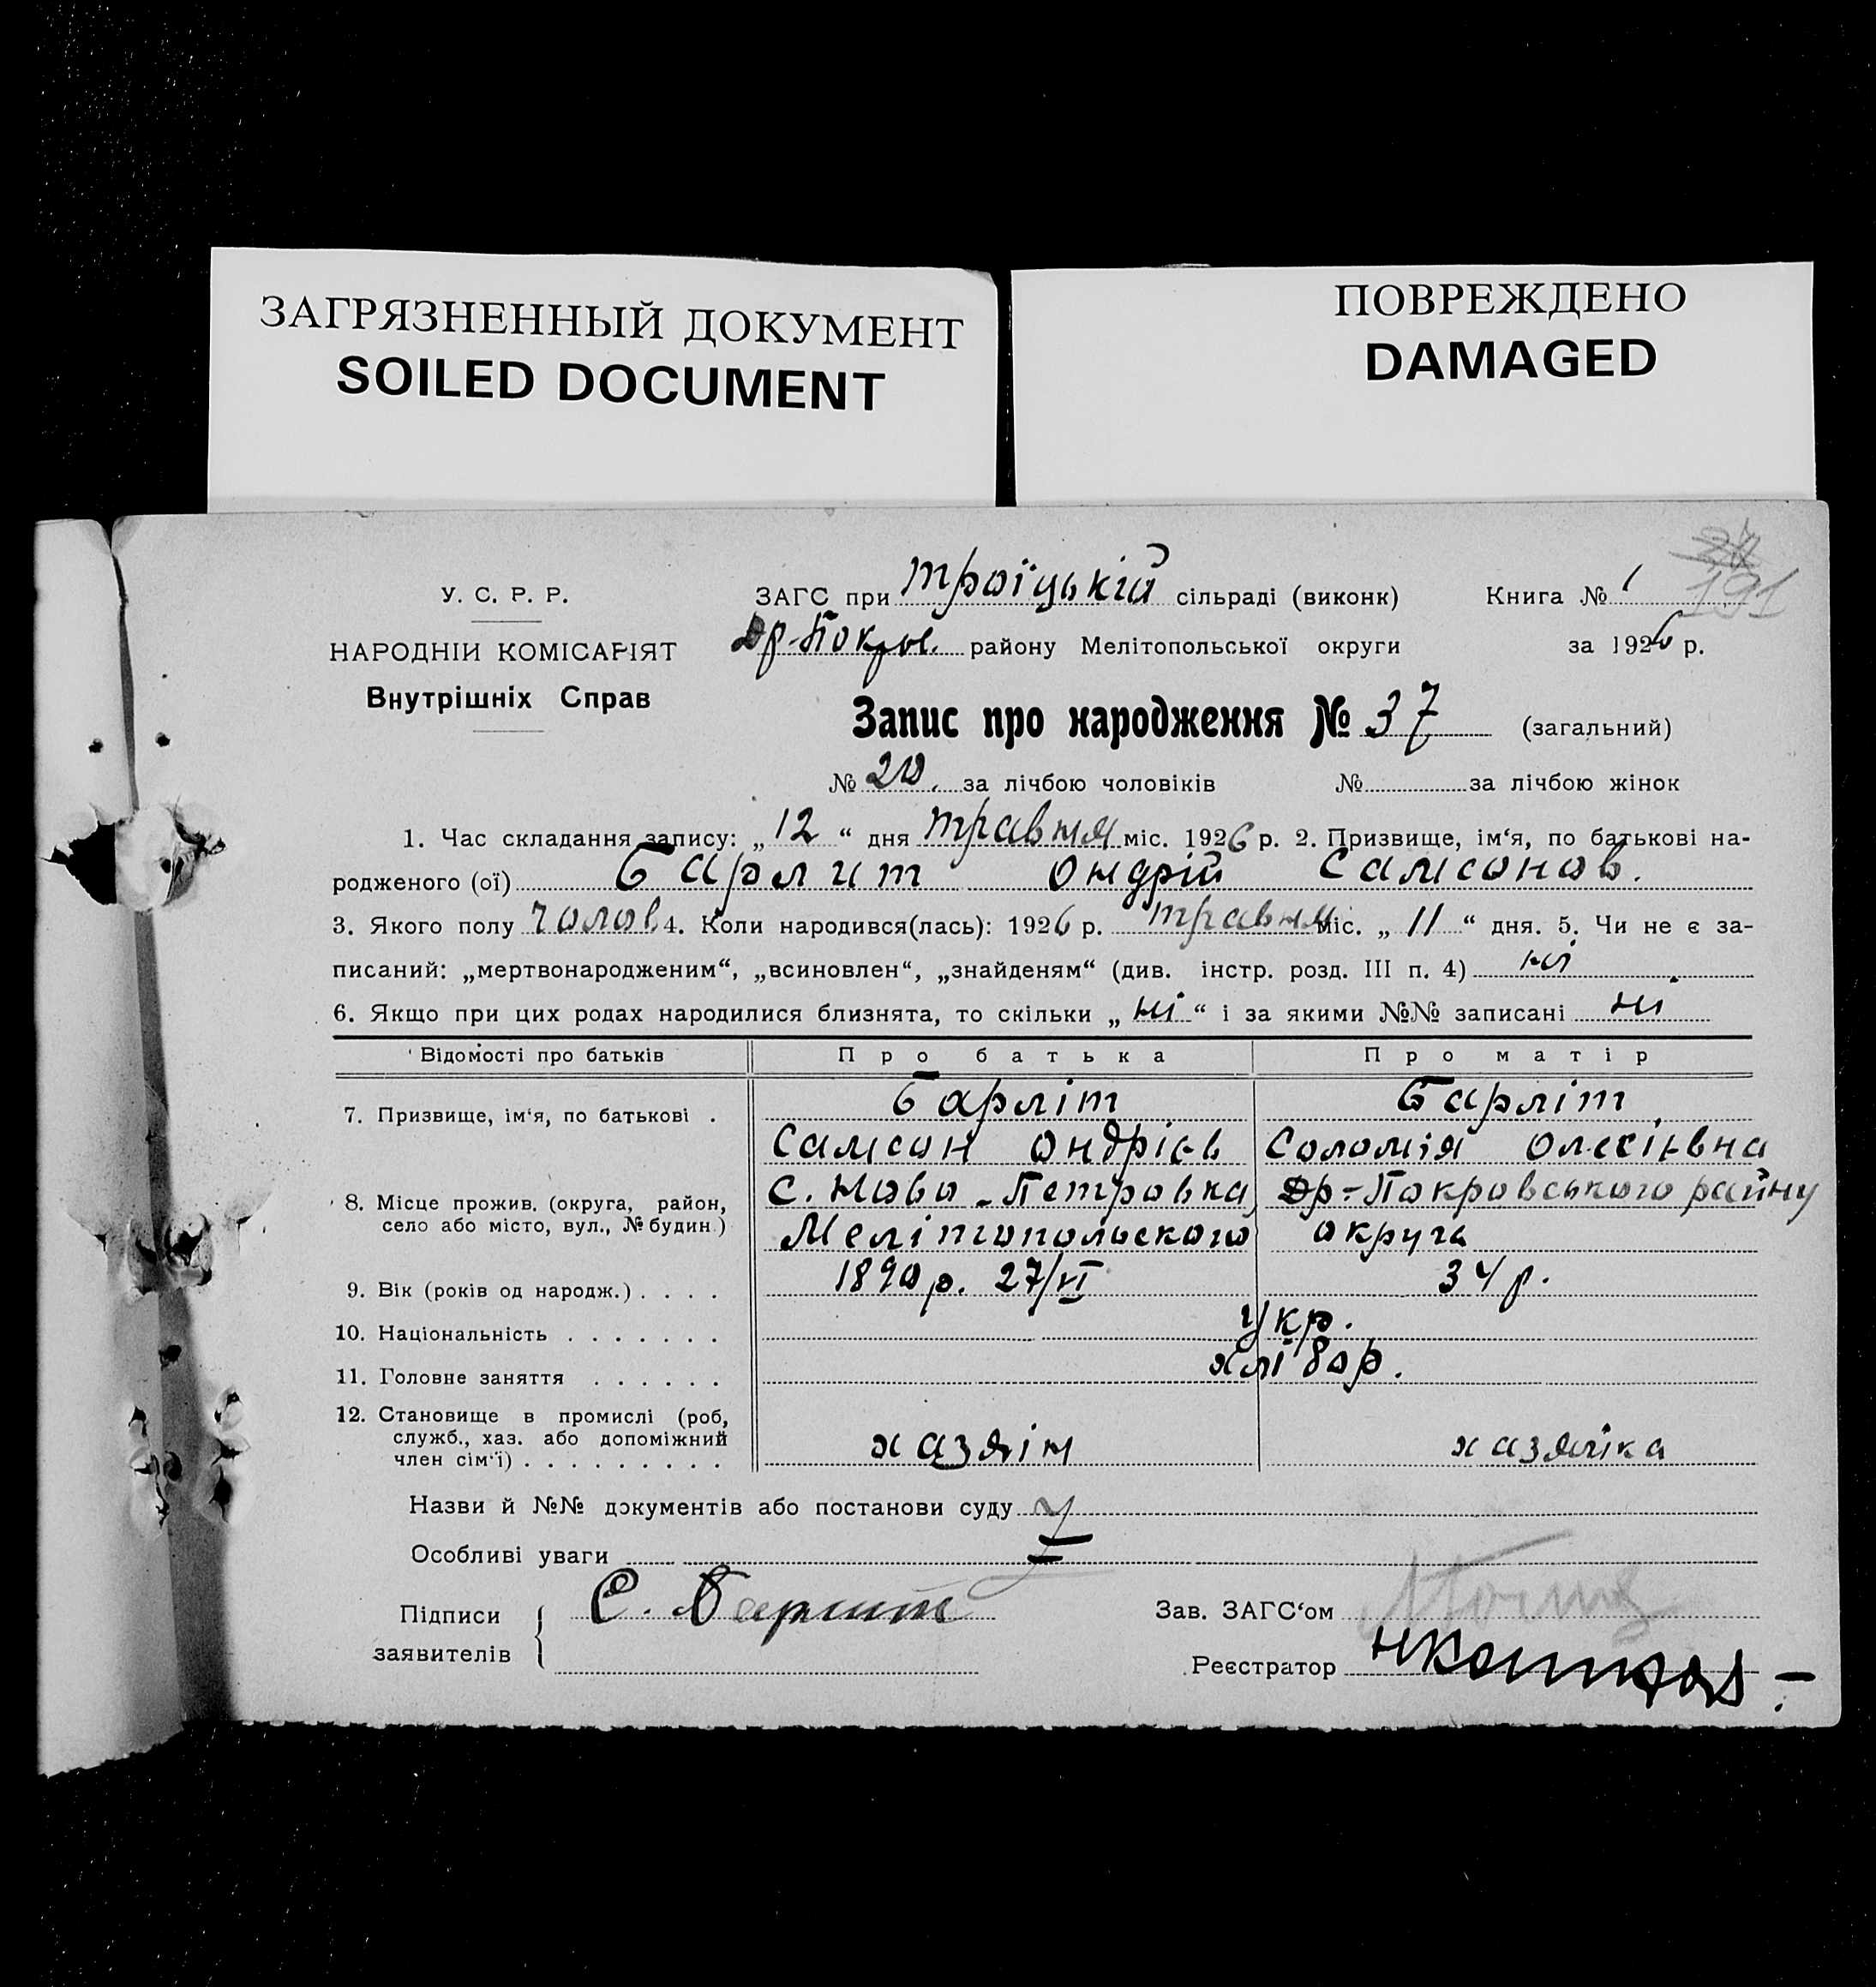 ЗАГРЯЗНЕННЫЙ ДОКУМЕНТ
SOILED DOCUMENT
ПОВРЕЖДЕНО
DAMAGED
191
У. С. Р. Р.
НАРОДНІЙ КОМІСАРІЯТ
Внутрішніх Справ
ЗАГС при Троїцькій сільраді (виконк) Книга № 1
Др-Покров. району Мелітопольської округи за 1926 р.
Запис про народження № 37 (загальний)
№ 20. за лічбою чоловіків № за лічбою жінок
1. Час складання запису: „ 12 “ дня травня міс. 1926 р. 2. Призвище, ім‘я, по батькові на-
родженого (ої) Барлит Ондрій Самсонов.
3. Якого полу чолов 4. Коли народився(лась): 1926 р. травня міс. „ 11 “ дня. 5. Чи не є за-
писаний: „мертвонародженим“, „всиновлен“, „знайденям“ (див. інстр. розд. III п. 4) ні
6. Якщо при цих родах народилися близнята, то скільки „ ні “ і за якими №№ записані ні
Відомості про батьків Про батька Про матір
7. Призвище, ім‘я, по батькові . Барліт Барліт
Самсон Ондрієв Соломія Олексіївна
8. Місце прожив. (округа, район, село або місто, вул., № будин.) с. Ново-Петровка Др-Покровського району
Мелітопольского округа
9. Вік (років од народж.) . . . . 1890 р. 27/VI 34 р.
10. Національність . . . . . . . Укр.
11. Головне заняття . . . . . . хлібор.
12. Становище в промислі (роб,
служб., хаз. або допоміжний
член сім‘ї) . . . . . . . . . хазяін хазяіка
Назви й №№ документів або постанови суду
Особливі уваги
Підписи заявителів С. Барлит
Зав. ЗАГС‘ом
Реєстратор